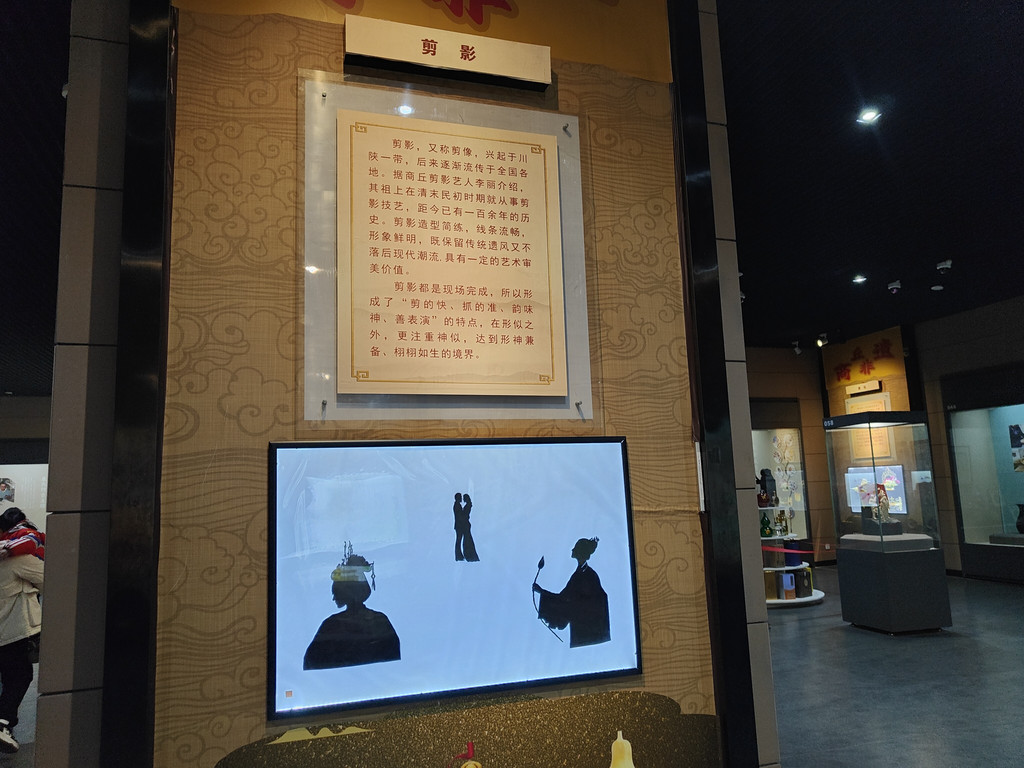 剪影
剪影，又称剪像，兴起于川
陕一带，后来逐渐流传于全国各
地。据商丘剪影艺人李丽介绍，
其祖上在清末民初时期就从事剪
影技艺，距今已有一百余年的历
史。剪影造型简练，线条流畅，
形象鲜明，既保留传统遗风又不
落后现代潮流,具有一定的艺术审
美价值。
剪影都是现场完成，所以形
成了“剪的快、抓的准、韵味
神、善表演”的特点，在形似之
外，更注重神似，达到形神兼
备、栩栩如生的境界。